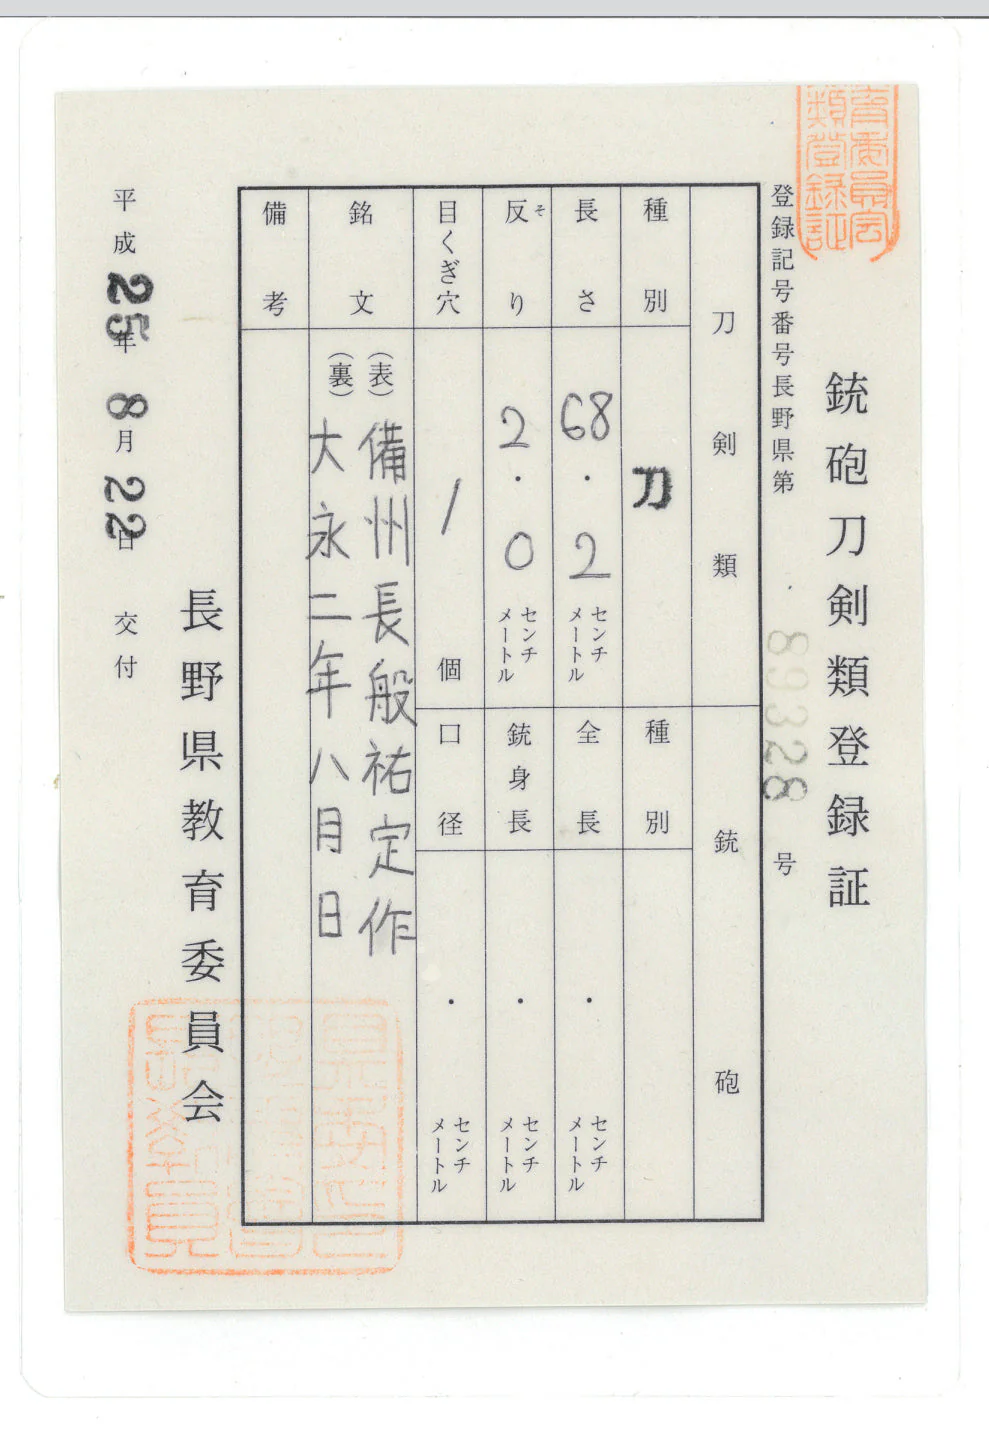 銃砲刀剣類登録証
登録記号番号長野県第 89328 号
刀剣類
銃砲
種別 刀
種別
長さ 68.2 センチメートル
全長 . センチメートル
反り そ 2.0 センチメートル
銃身長 . センチメートル
目くぎ穴 1 個
口径 . センチメートル
銘文
(表) 備州長般祐定作
(裏) 大永二年八月日
備考
長野県教育委員会
平成25年8月22日 交付
育委員会
類登録証